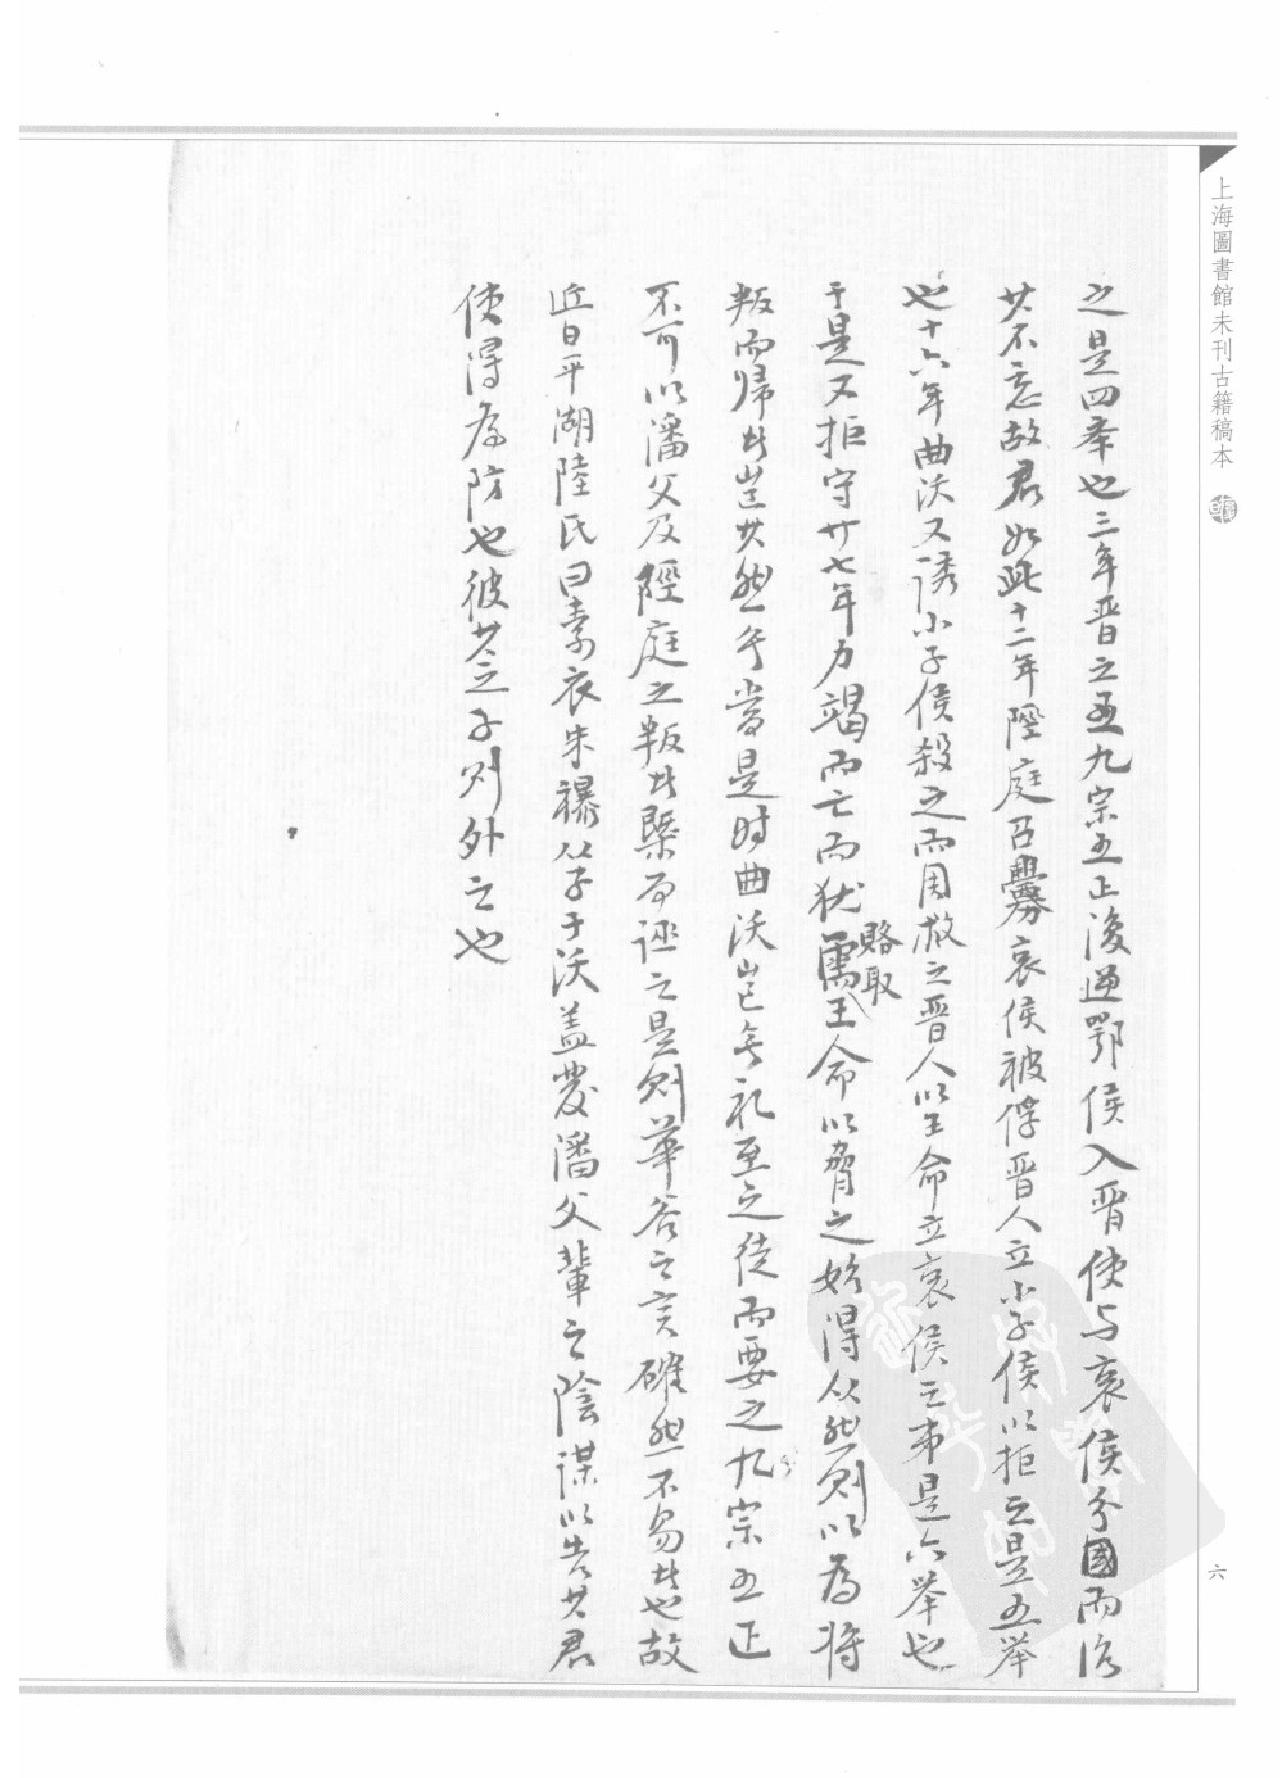 上海圖書館未刊古籍稿本
之是四舉也三年晉之五九宗五正復逆鄂侯入晉使与哀侯分國而治
其不忘故君如此十二年陘庭召釁哀侯被俘晉人立小子侯以拒之是五举
也十六年曲沃又誘小子侯殺之而周救之晉人以王命立哀侯之弟是六举也
于是又拒守廿七年力竭而亡而犹賂取王命以脅之始得从然則以為將
叛而归者豈其然乎當是时曲沃豈无礼至之徒而要之九宗五正
不可以潘父及陘庭之叛者槩而誣之是則華谷之言確然不易者也故
近日平湖陸氏曰素衣朱襮从子于沃盖發潘父輩之陰謀以告其君
使得为防也彼其之子則外之也
六